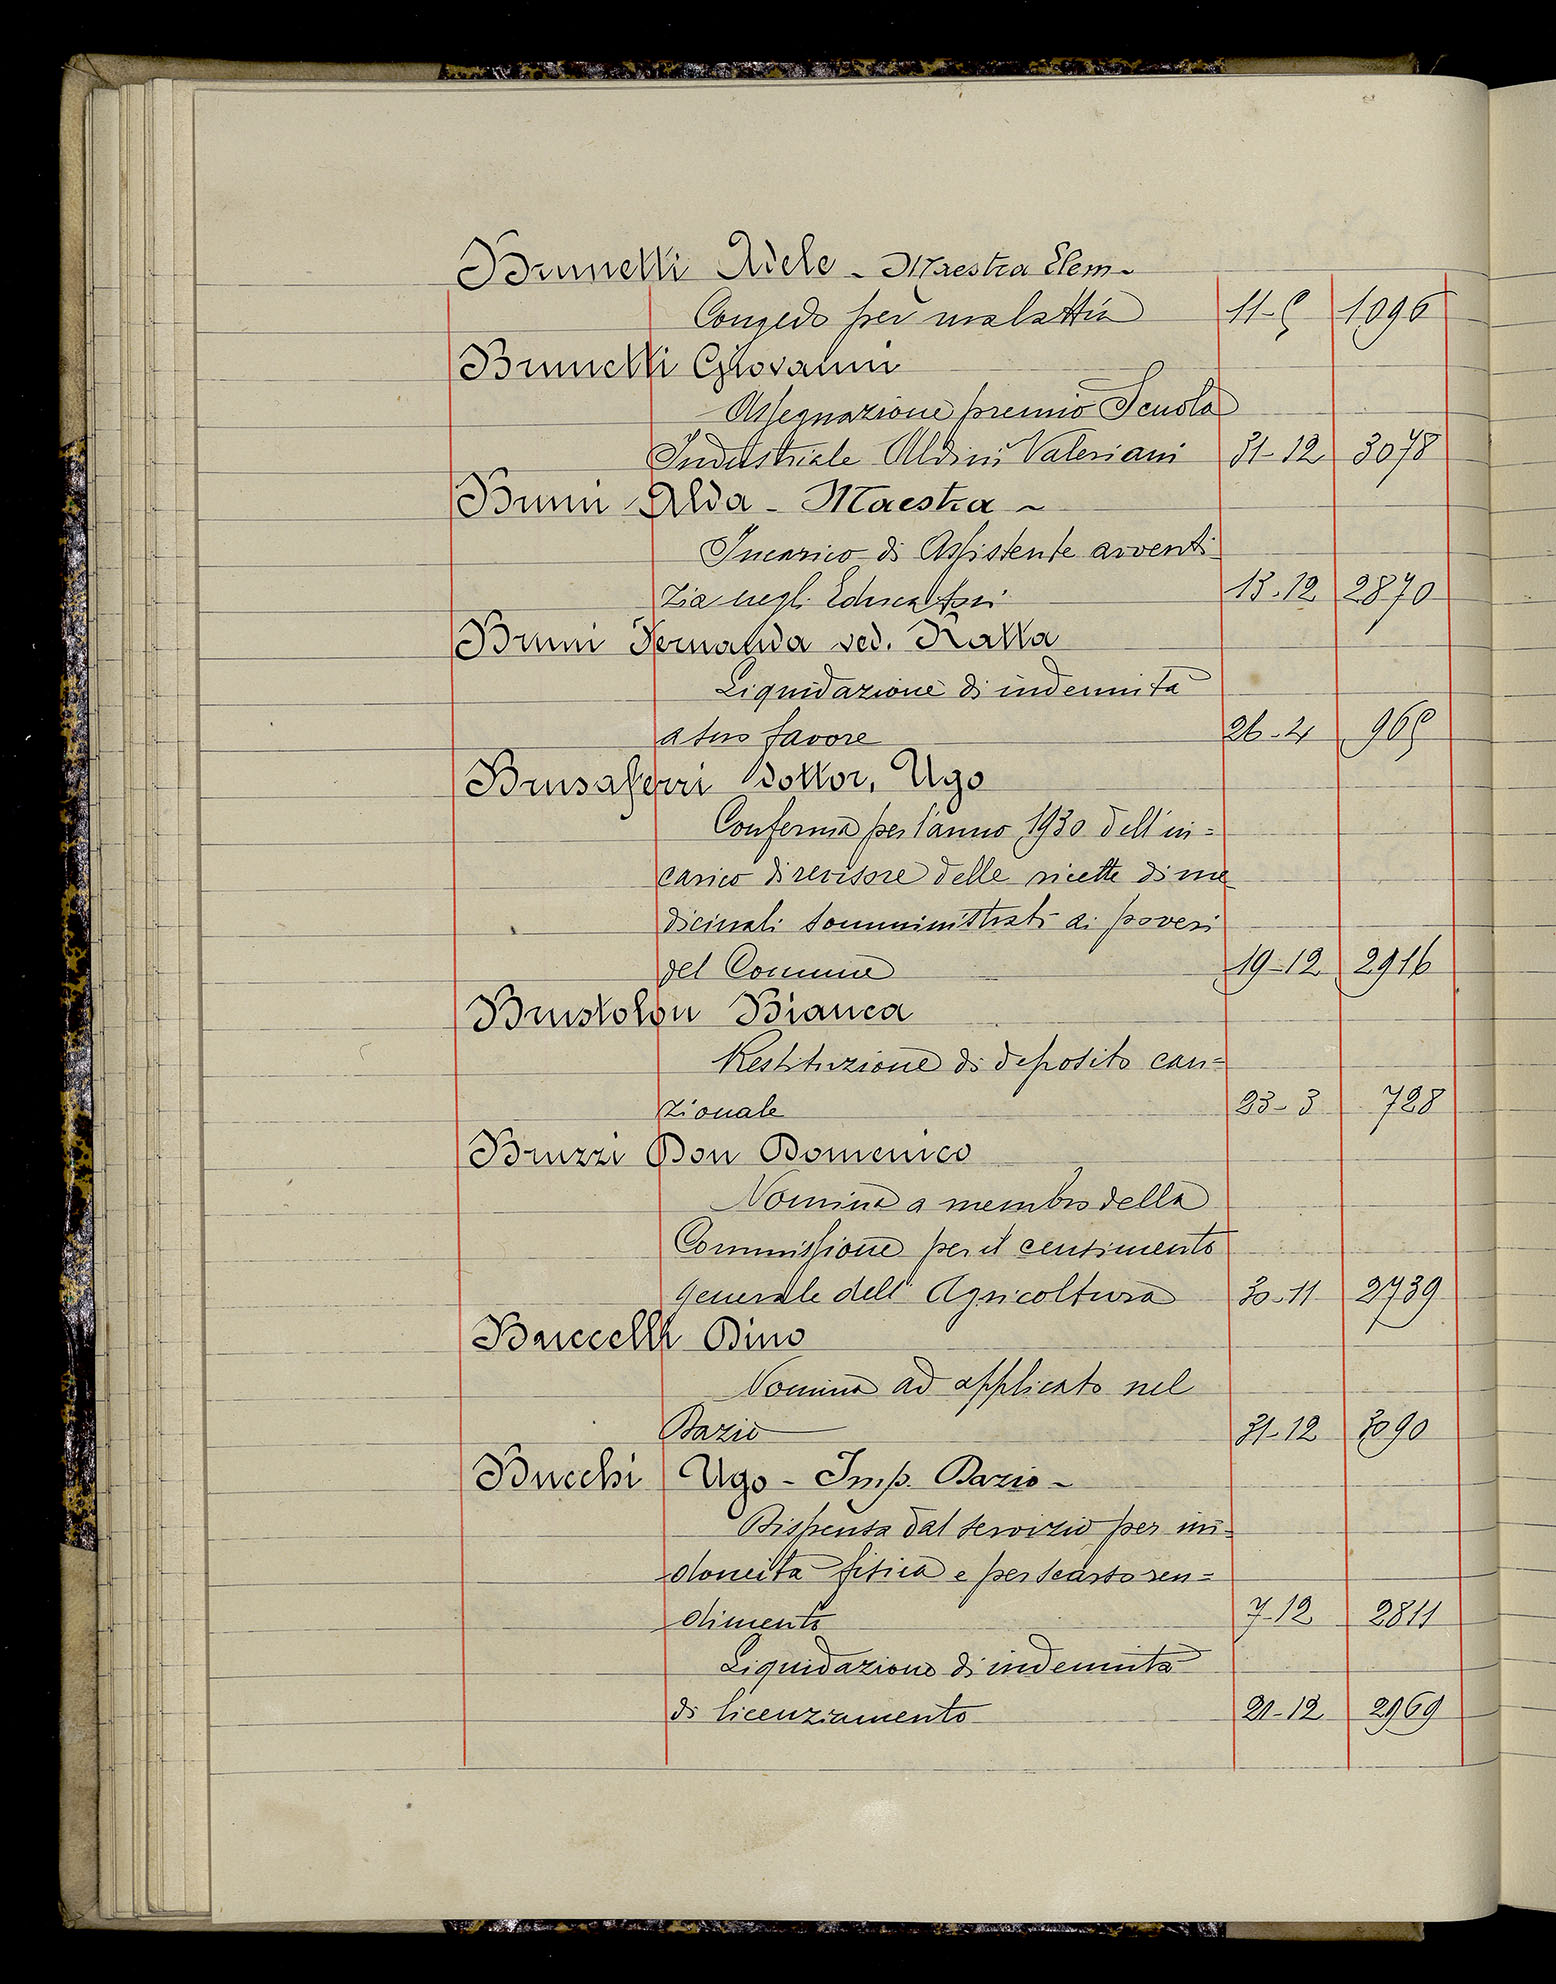 Brunelli Adele - Maestra Elem-
Congedo per malattia 11-5 1096
Brunelli Giovanni
Assegnazione premio Scuola
Industriale Aldini Valeriani 31-12 3078
Bruni Alda - Maestra -
Incarico di Assistente avventi-
zia negli Educatori 13-12 2870
Bruni Fernanda ved. Ratta
Liquidazione di indennità
a suo favore 26-4 965
Brusaferri Dottor, Ugo
Conferma per l'anno 1930 dell'in=
carico di revisore delle ricette di me
dicinali somministrati ai poveri
del Comune 19-12 2916
Brustolon Bianca
Restituzione di deposito cau=
zionale 23-3 728
Bruzzi Don Domenico
Nomina a membro della
Commissione per il censimento
generale dell'Agricoltura 30-11 2739
Buccelli Dino
Nomina ad applicato nel
Dazio 31-12 3090
Bucchi Ugo - Imp. Dazio -
Dispensa dal servizio per ini-
doneità fisica e per scarso ren=
dimento 7-12 2811
Liquidazione di indennità
di licenziamento 21-12 2969